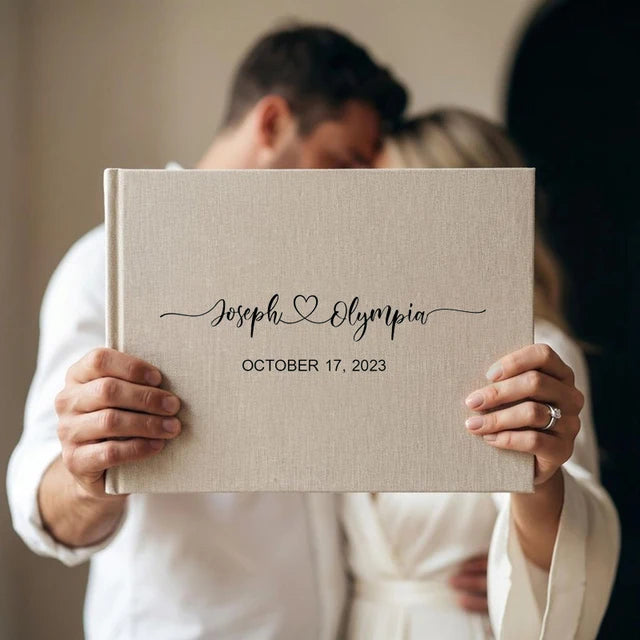 Joseph Olympia
OCTOBER 17, 2023